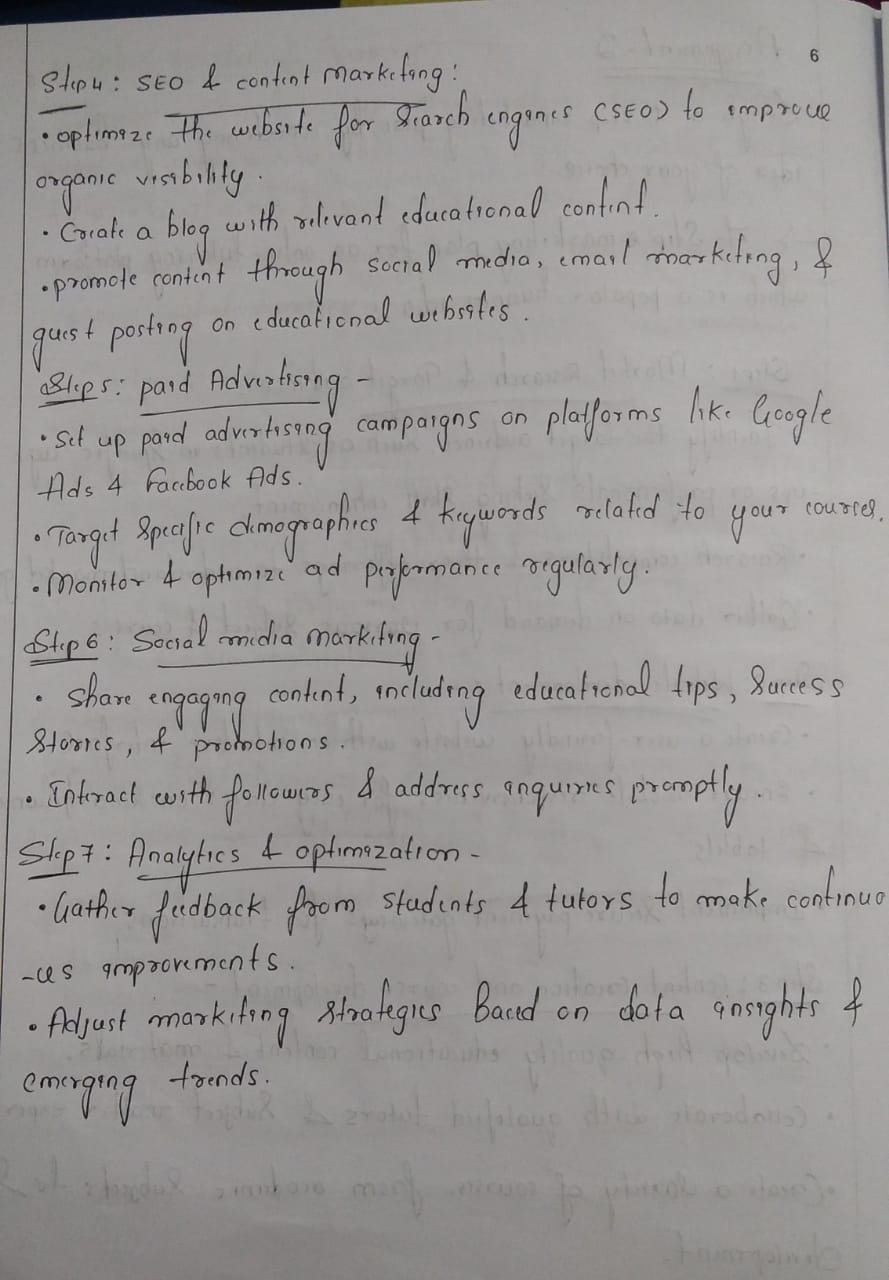 6
Step 4: SEO & content marketing:
• optimize the website for search engines (SEO) to improve
organic visibility.
• Create a blog with relevant educational content.
• promote content through social media, email marketing, &
guest posting on educational websites.
Step 5: paid Advertising -
• Set up paid advertising campaigns on platforms like Google
Ads & Facebook Ads.
• Target specific demographics & keywords related to your courses.
• Monitor & optimize ad performance regularly.
Step 6: Social media marketing -
• Share engaging content, including educational tips, Success
Stories, & promotions.
• Interact with followers & address inquiries promptly.
Step 7: Analytics & optimization -
• Gather feedback from students & tutors to make continuo
-us improvements.
• Adjust marketing strategies Based on data insights &
emerging trends.